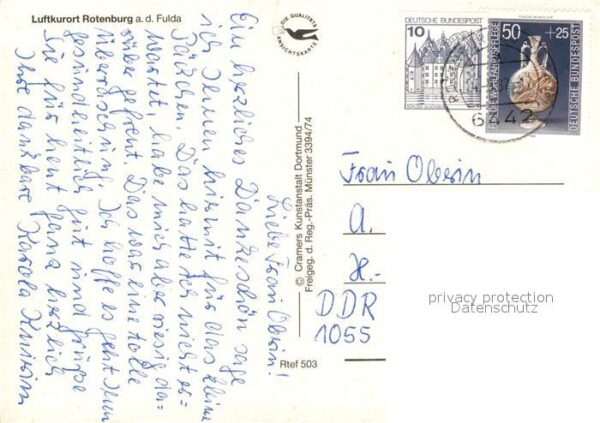 Luftkurort Rotenburg a. d. Fulda
DIE QUALITÄTS
ANSICHTSKARTE
DEUTSCHE BUNDESPOST
10
50
+25
DEUTSCHE BUNDESPOST
FÜR DIE WOHLFAHRTSPFLEGE
6442
Liebe Frau Oberin!
Ein herzliches Dankeschön sage
ich Ihnen hiermit für das kleine
Päckchen. Das hatte ich nicht er=
wartet, habe mich aber riesig da=
rüber gefreut. Das war eine tolle
Überraschung. Ich hoffe es geht Ihnen
gesundheitlich gut und grüße
Sie für heut ganz herzlich
Ihre dankbare Karola
© Cramers Kunstanstalt Dortmund
Freigeg. d. Reg.-Präs. Münster 3394/74
Rtef 503
Frau Oberin
A.
H.-
DDR
1055
privacy protection
Datenschutz